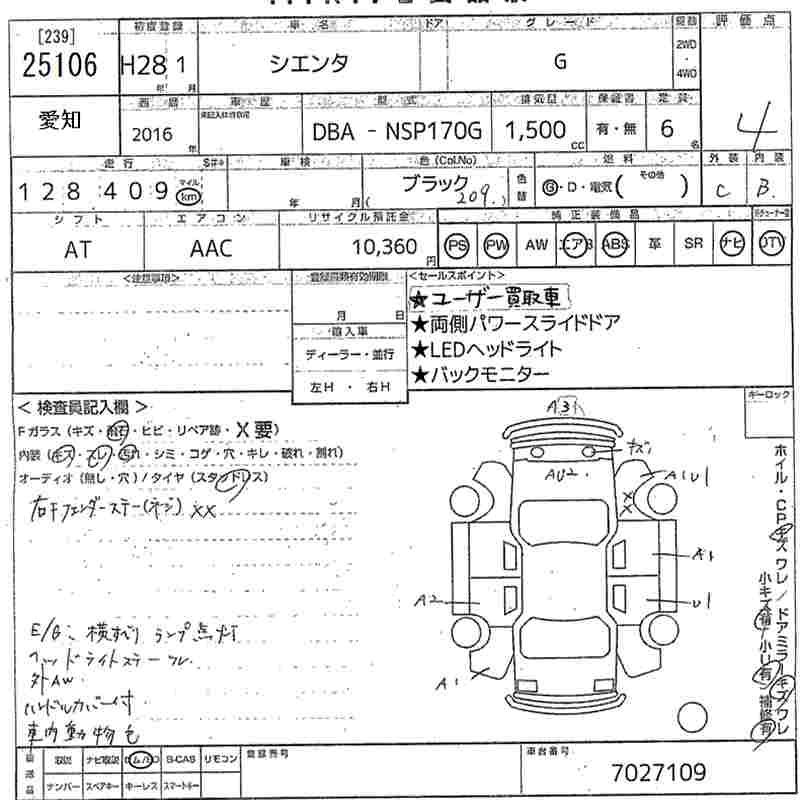 [239]
25106
初度登録
車名
ドア
グレード
駆動
評価点
H28 1
年 月
シエンタ
G
2WD
・
4WD
愛知
西暦
車歴
型式
排気量
保証書
定員
2016
年
DBA - NSP170G
1,500
CC
有・無
6
名
4
走行
車検
色 (Col.No)
燃料
外装
内装
128409
マイル
km
年 月
ブラック
209
色替
G・D・電気( その他 )
C
B
シフト
エアコン
リサイクル預託金
純正装備品
AT
AAC
10,360
円
PS
PW
AW
エアB
ABS
革
SR
ナビ
<注意事項>
登録書類有効期限
月 日
<セールスポイント>
★ユーザー買取車
★両側パワースライドドア
★LEDヘッドライト
★バックモニター
輸入車
ディーラー・並行
左H ・ 右H
キーロック
< 検査員記入欄 >
Fガラス (キズ・飛石・ヒビ・リペア跡・X要)
内装 (キズ・スレ・汚れ・シミ・コゲ・穴・キレ・破れ・割れ)
オーディオ (無し・穴) / タイヤ (スタッドレス)
右Fフェンダーステー(ネジ) XX
A3
キズ
AU2
A1U1
XX
A1
A2
U1
A1
E/G:
横すべり ランプ点灯
ヘッドライトステー
外AW
ハンドルカバー付
車内動物毛
ホイル・CPキズ ワレ / ドアミラーキズ ワレ
小キズ有 / 小U有 / 補修有
取説
ナビ取説
S-CAS
リモコン
ナンバー
スペアキー
キーレス
スマートキー
登録番号
車台番号
7027109